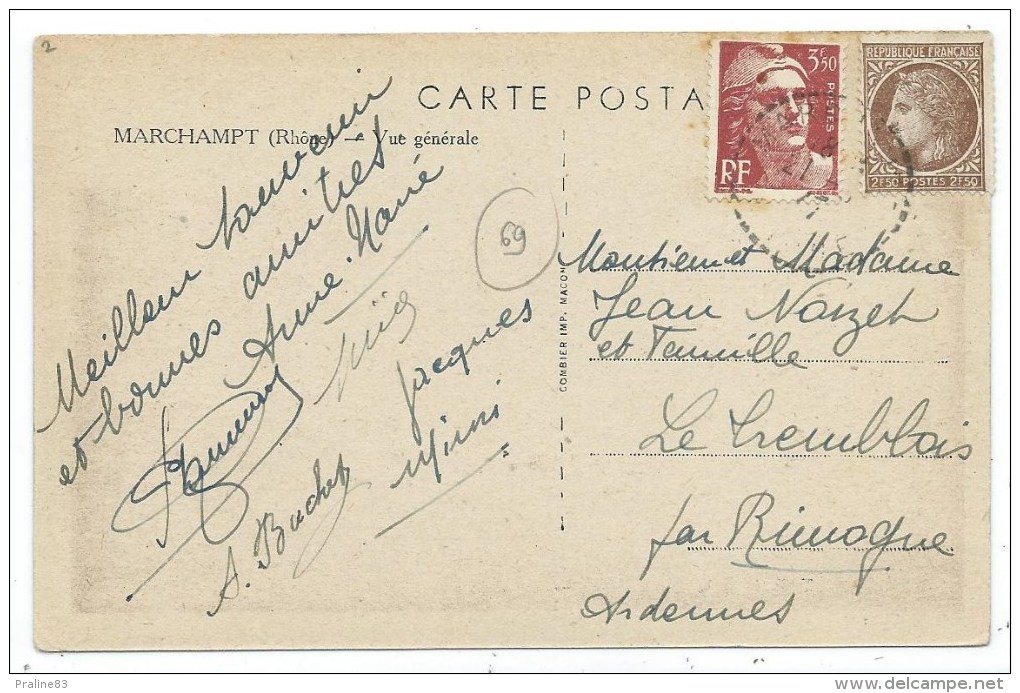 2
CARTE POSTA
MARCHAMPT (Rhône) — Vue générale
Meilleur souvenir
et bonnes amitiés
Anne-Marie
Jacques
Mimi
A. Bachet
69
COMBIER IMP. MACON
3F50
POSTES
RF
REPUBLIQUE FRANÇAISE
2F50 POSTES 2F50
Monsieur et Madame
Jean Noizet
et Famille
Le Tremblois
par Rimogne
Ardennes
Praline83
www.delcampe.net